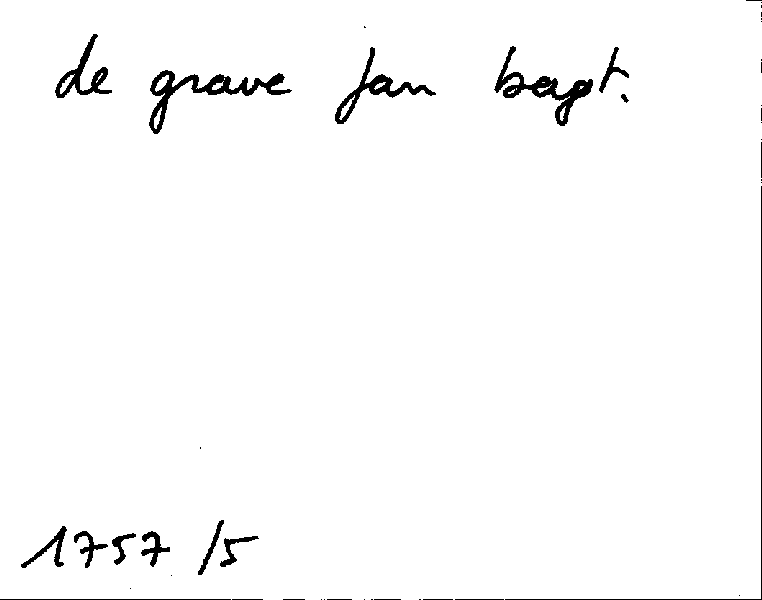 de grave Jan bapt.
1757 /5